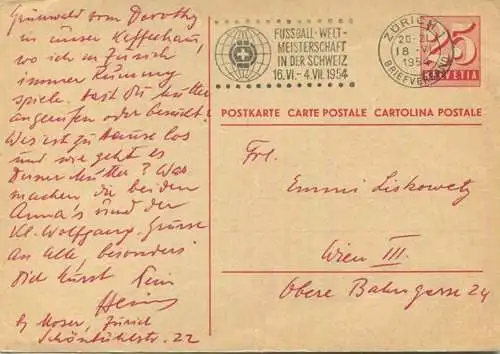 Grünwald vom Dorothy
in unser Kaffeehaus,
wo ich in Zürich
immer
spiele. Hast du Mutter
angerufen oder besucht?
Was ist zu Hause los
und wie geht es
Deiner Mutter? Was
machen die beiden
Anna's und der
Kl. Wolfgang. Grüsse
an Alle, besonders
Dich küsst Dein
Heini
b/ Moser, Zürich
Schönbühlstr. 22
FUSSBALL-WELT-
MEISTERSCHAFT
IN DER SCHWEIZ
16.VI.-4.VII.1954
ZÜRICH 1
20-21
18.VI.
1954
BRIEFVERSAND
25
HELVETIA
POSTKARTE CARTE POSTALE CARTOLINA POSTALE
Frl.
Emmi Liskowetz
Wien III.
Obere Bahngasse 24